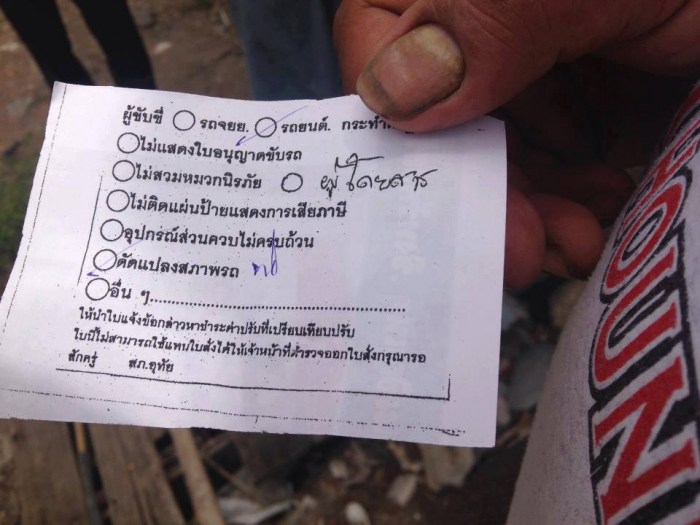 ผู้ขับขี่ รถจยย. รถยนต์. กระทำ
ไม่แสดงใบอนุญาตขับรถ
ไม่สวมหมวกนิรภัย ผู้โดยสาร
ไม่ติดแผ่นป้ายแสดงการเสียภาษี
อุปกรณ์ส่วนควบไม่ครบถ้วน
ดัดแปลงสภาพรถ
อื่น ๆ......................................................
ให้นำใบแจ้งข้อกล่าวหาชำระค่าปรับที่เปรียบเทียบปรับ
ใบนี้ไม่สามารถใช้แทนใบสั่งได้ให้เจ้าหน้าที่ตำรวจออกใบสั่งกรุณารอ
สักครู่ สภ.อุทัย
HOUN